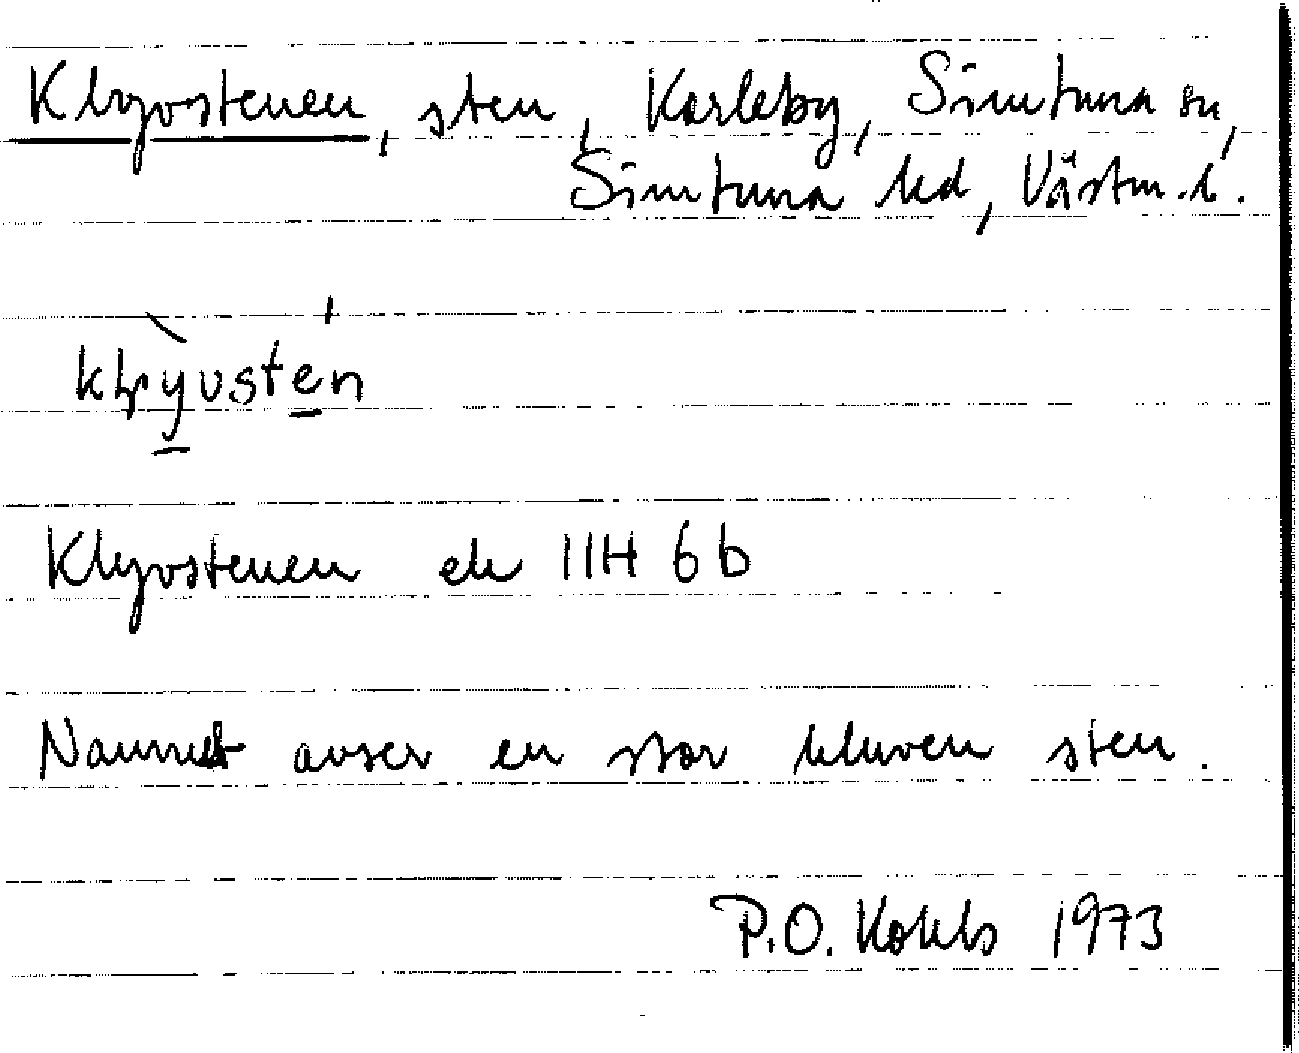 Klyvstenen, sten, Karleby, Simtuna sn,
Simtuna hd, Västm. l.
Klyvstenen ek 11H 6b
Namnet avser en stor kluven sten.
P.O. 1973